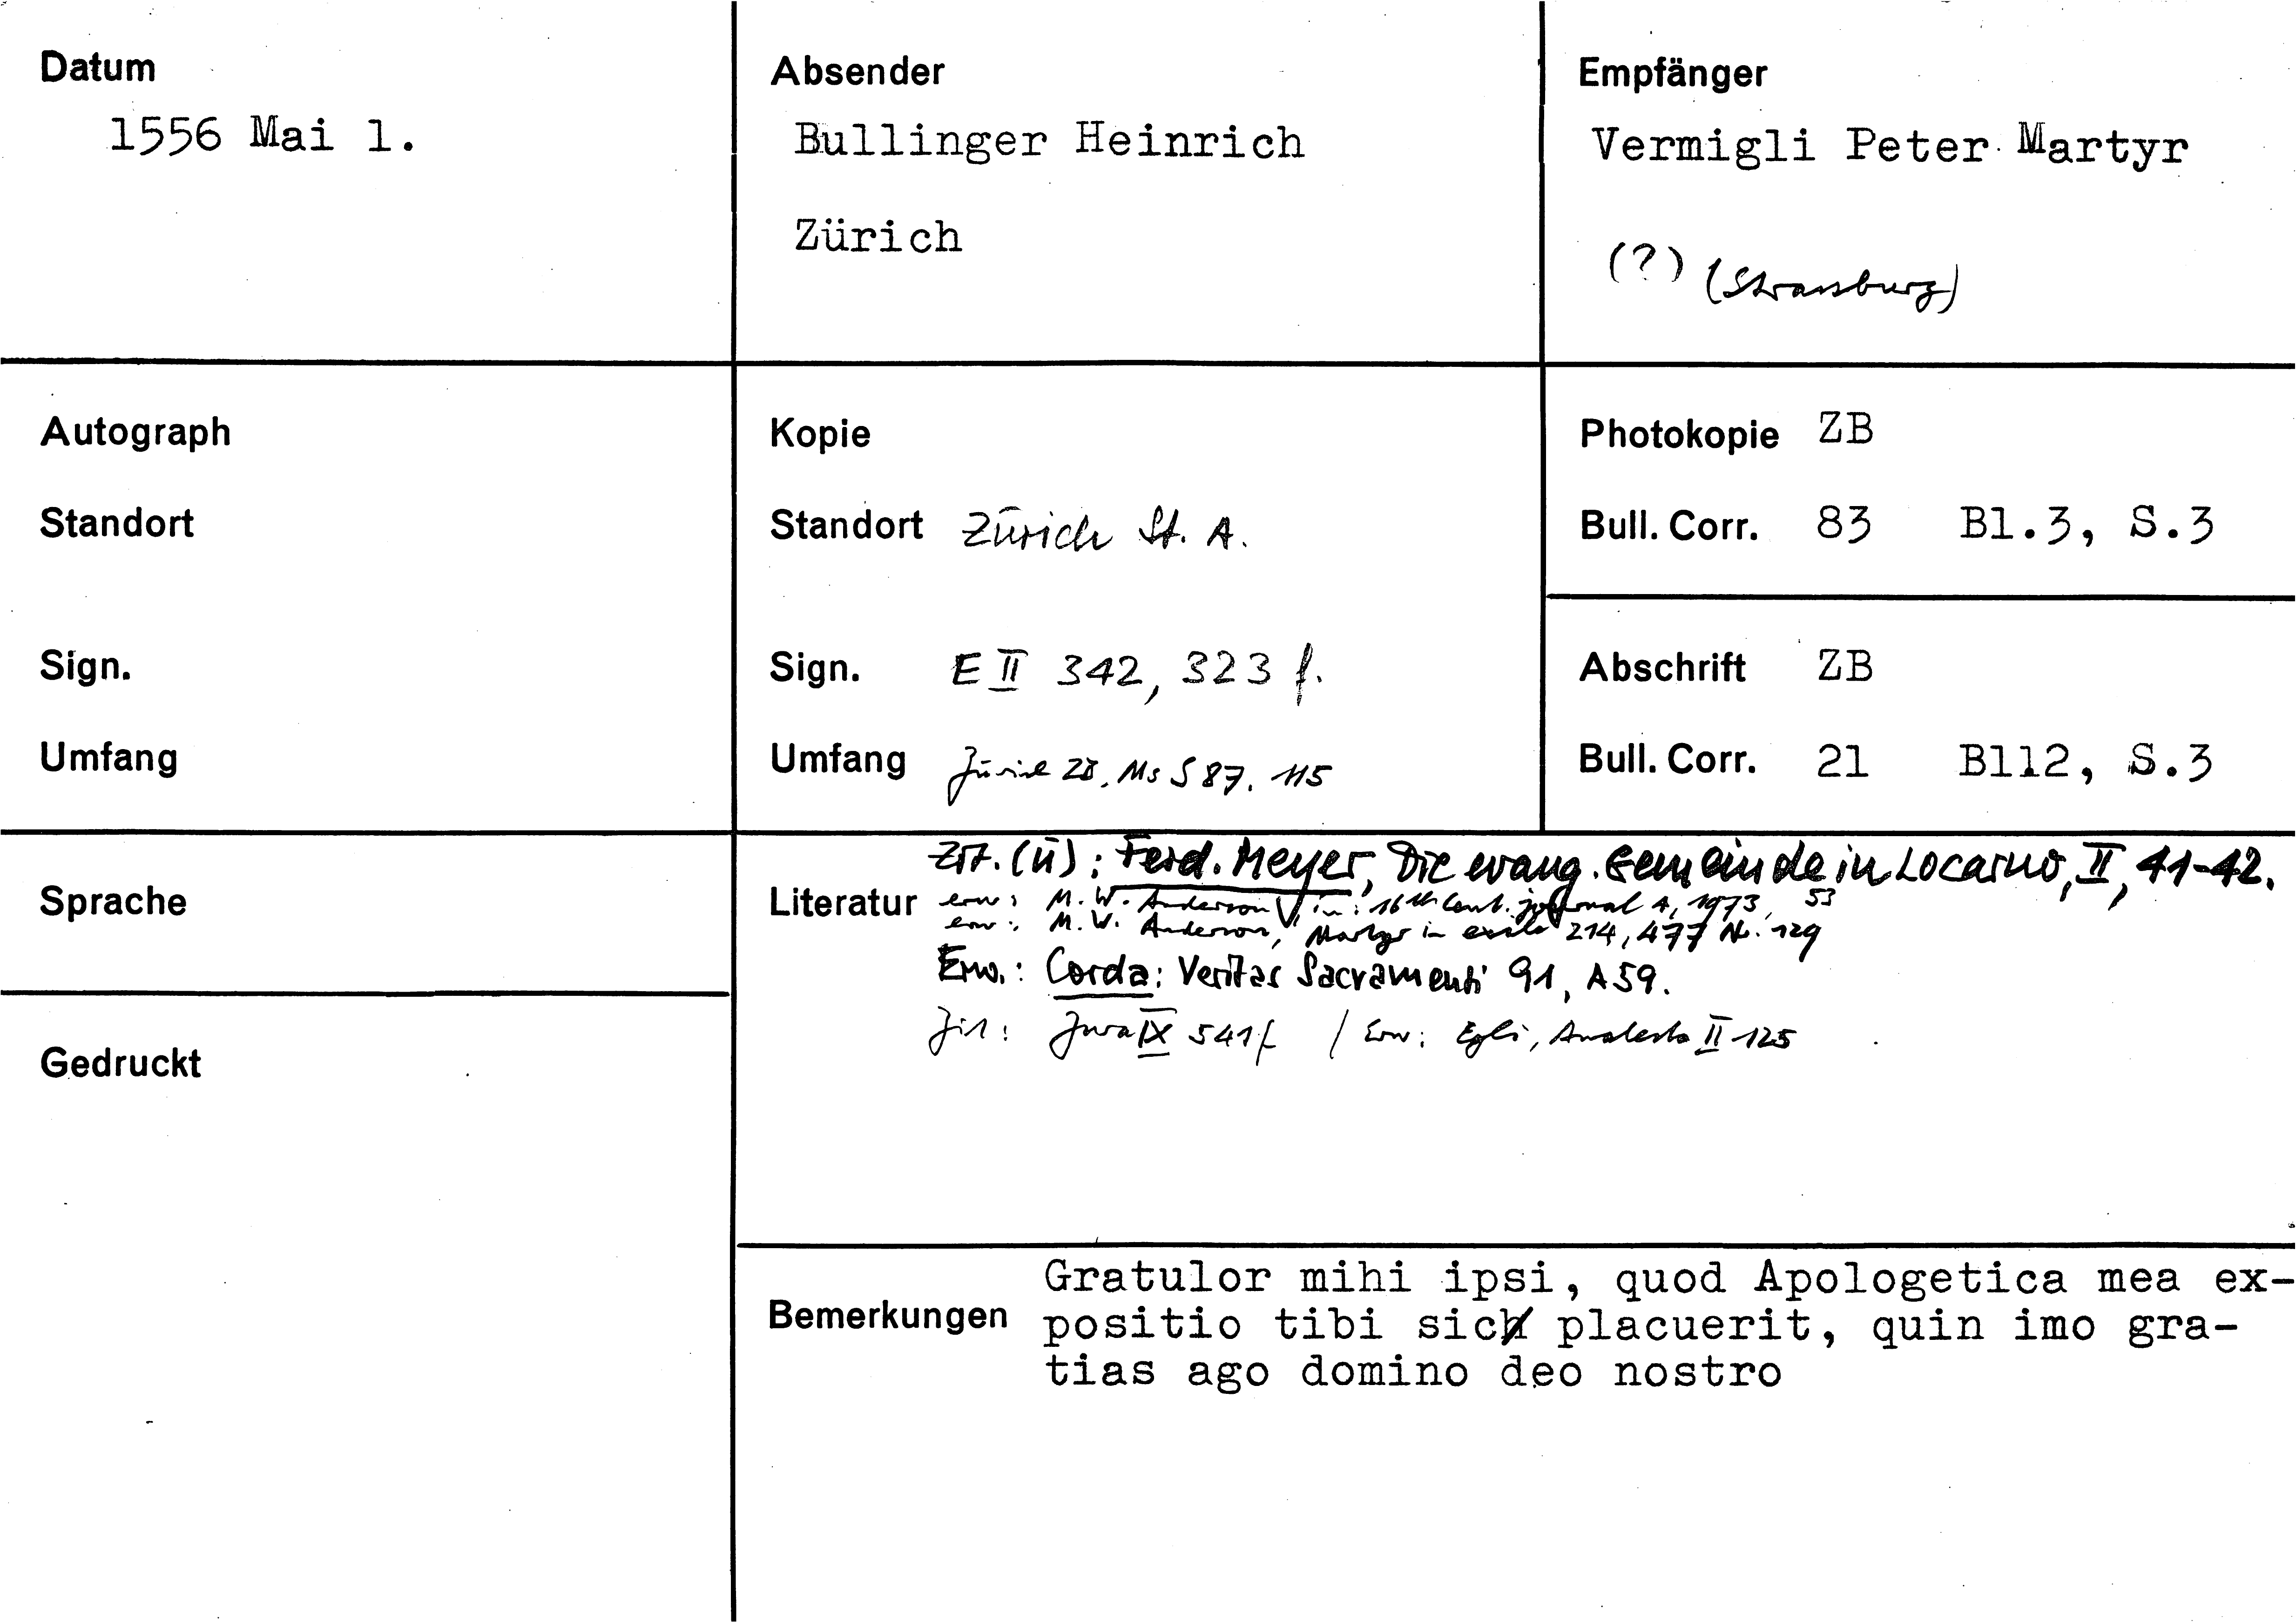 Datum
1556 Mai 1.
Absender
Bullinger Heinrich
Zürich
Empfänger
Vermigli Peter Martyr
(?) (Strassburg)
Autograph
Standort
Sign.
Umfang
Kopie
Standort Zürich St. A.
Sign. E II 342, 323 f.
Umfang Zürich ZB, Ms S 87, 115
Photokopie ZB
Bull. Corr. 83 Bl.3, S.3
Abschrift ZB
Bull. Corr. 21 Bl12, S.3
Sprache
Gedruckt
Zit. (ü): Ferd. Meyer, Die evang. Gemeinde in Locarno, II, 41-42.
Literatur erw: M. W. Anderson, in: 16th Cent. journal 4, 1973, 53
erw: M. W. Anderson, Martyr in exile 214, 477 Nr. 129
Erw.: Corda: Veritas Sacramenti 91, A59.
Zit: Jura IX 541f / Erw: Egli, Analecta II 125
Bemerkungen
Gratulor mihi ipsi, quod Apologetica mea ex-
positio tibi sic placuerit, quin imo gra-
tias ago domino deo nostro